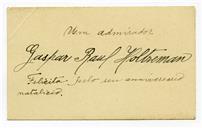 Um admirador
Gaspar Raul Holtreman
Felicita pelo seu anniversario
natalicio.